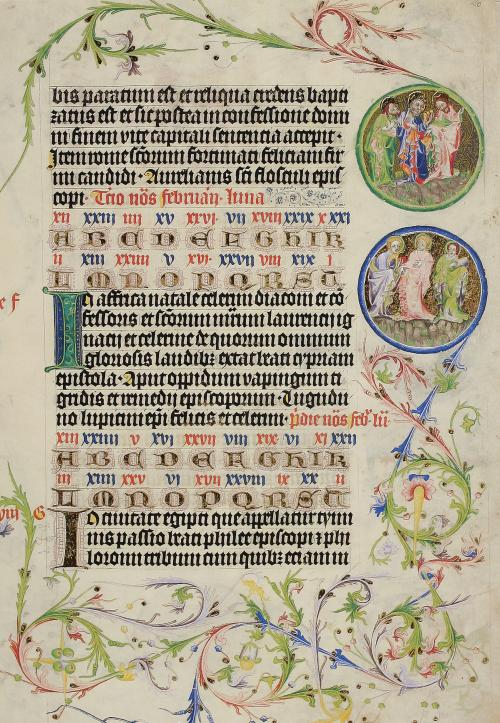 bis paratum est et reliqua credens bapti
zatus est et sic postea in confessione domi
ni finem vite capitali sententia accepit ·
Item rome scorum fortunati feliciani fir
mi candidi · Aurelianis sci flosculi epis
copi · Tcio nos februar. luna
xii xxiii iiii xv xxvi vii xviii xxix x xxi
A B C D E F G H I K
ii xiii xxiiii v xvi xxvii viii xix i
L M N O P Q R S T
In affrica natale celerini diaconi et co
e f
fessoris et scorum mrum laurencii ig
nacii et celerine de quorum omnium
gloriosis laudibz extat beati cypriani
epistola · Aput oppidum vapingum ti
gridis et remedii episcoporum · Lugudu
no lupicini epi felicis et celerini · pdie nos feb lu
xiii xxiiii v xvi xxvii viii xix xi xxii
A B C D E F G H I K
iii xiiii xxv vi xvii xxviii ix xx ii
L M N O P Q R S T
G
In civitate egipti que appellatur tymi
nis passio beati philee episcopi z phi
loromi tribuni cum quibz eciam in